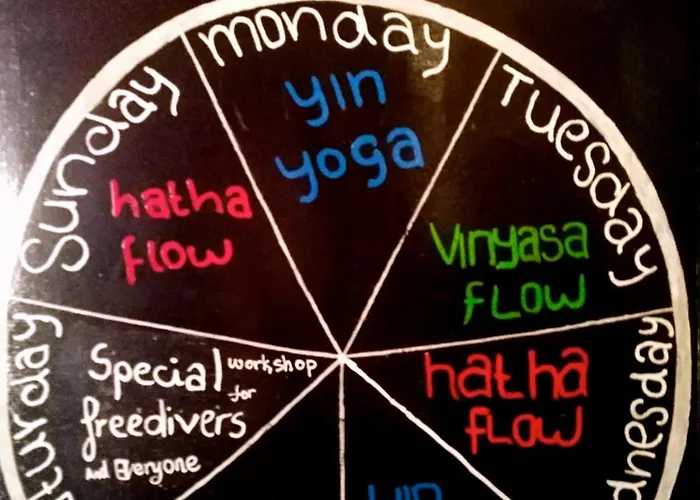 monday
yin
yoga
Tuesday
Vinyasa
FLOW
hatha
FLOW
Special workshop
for
freedivers
And Everyone
Sunday
hatha
flow